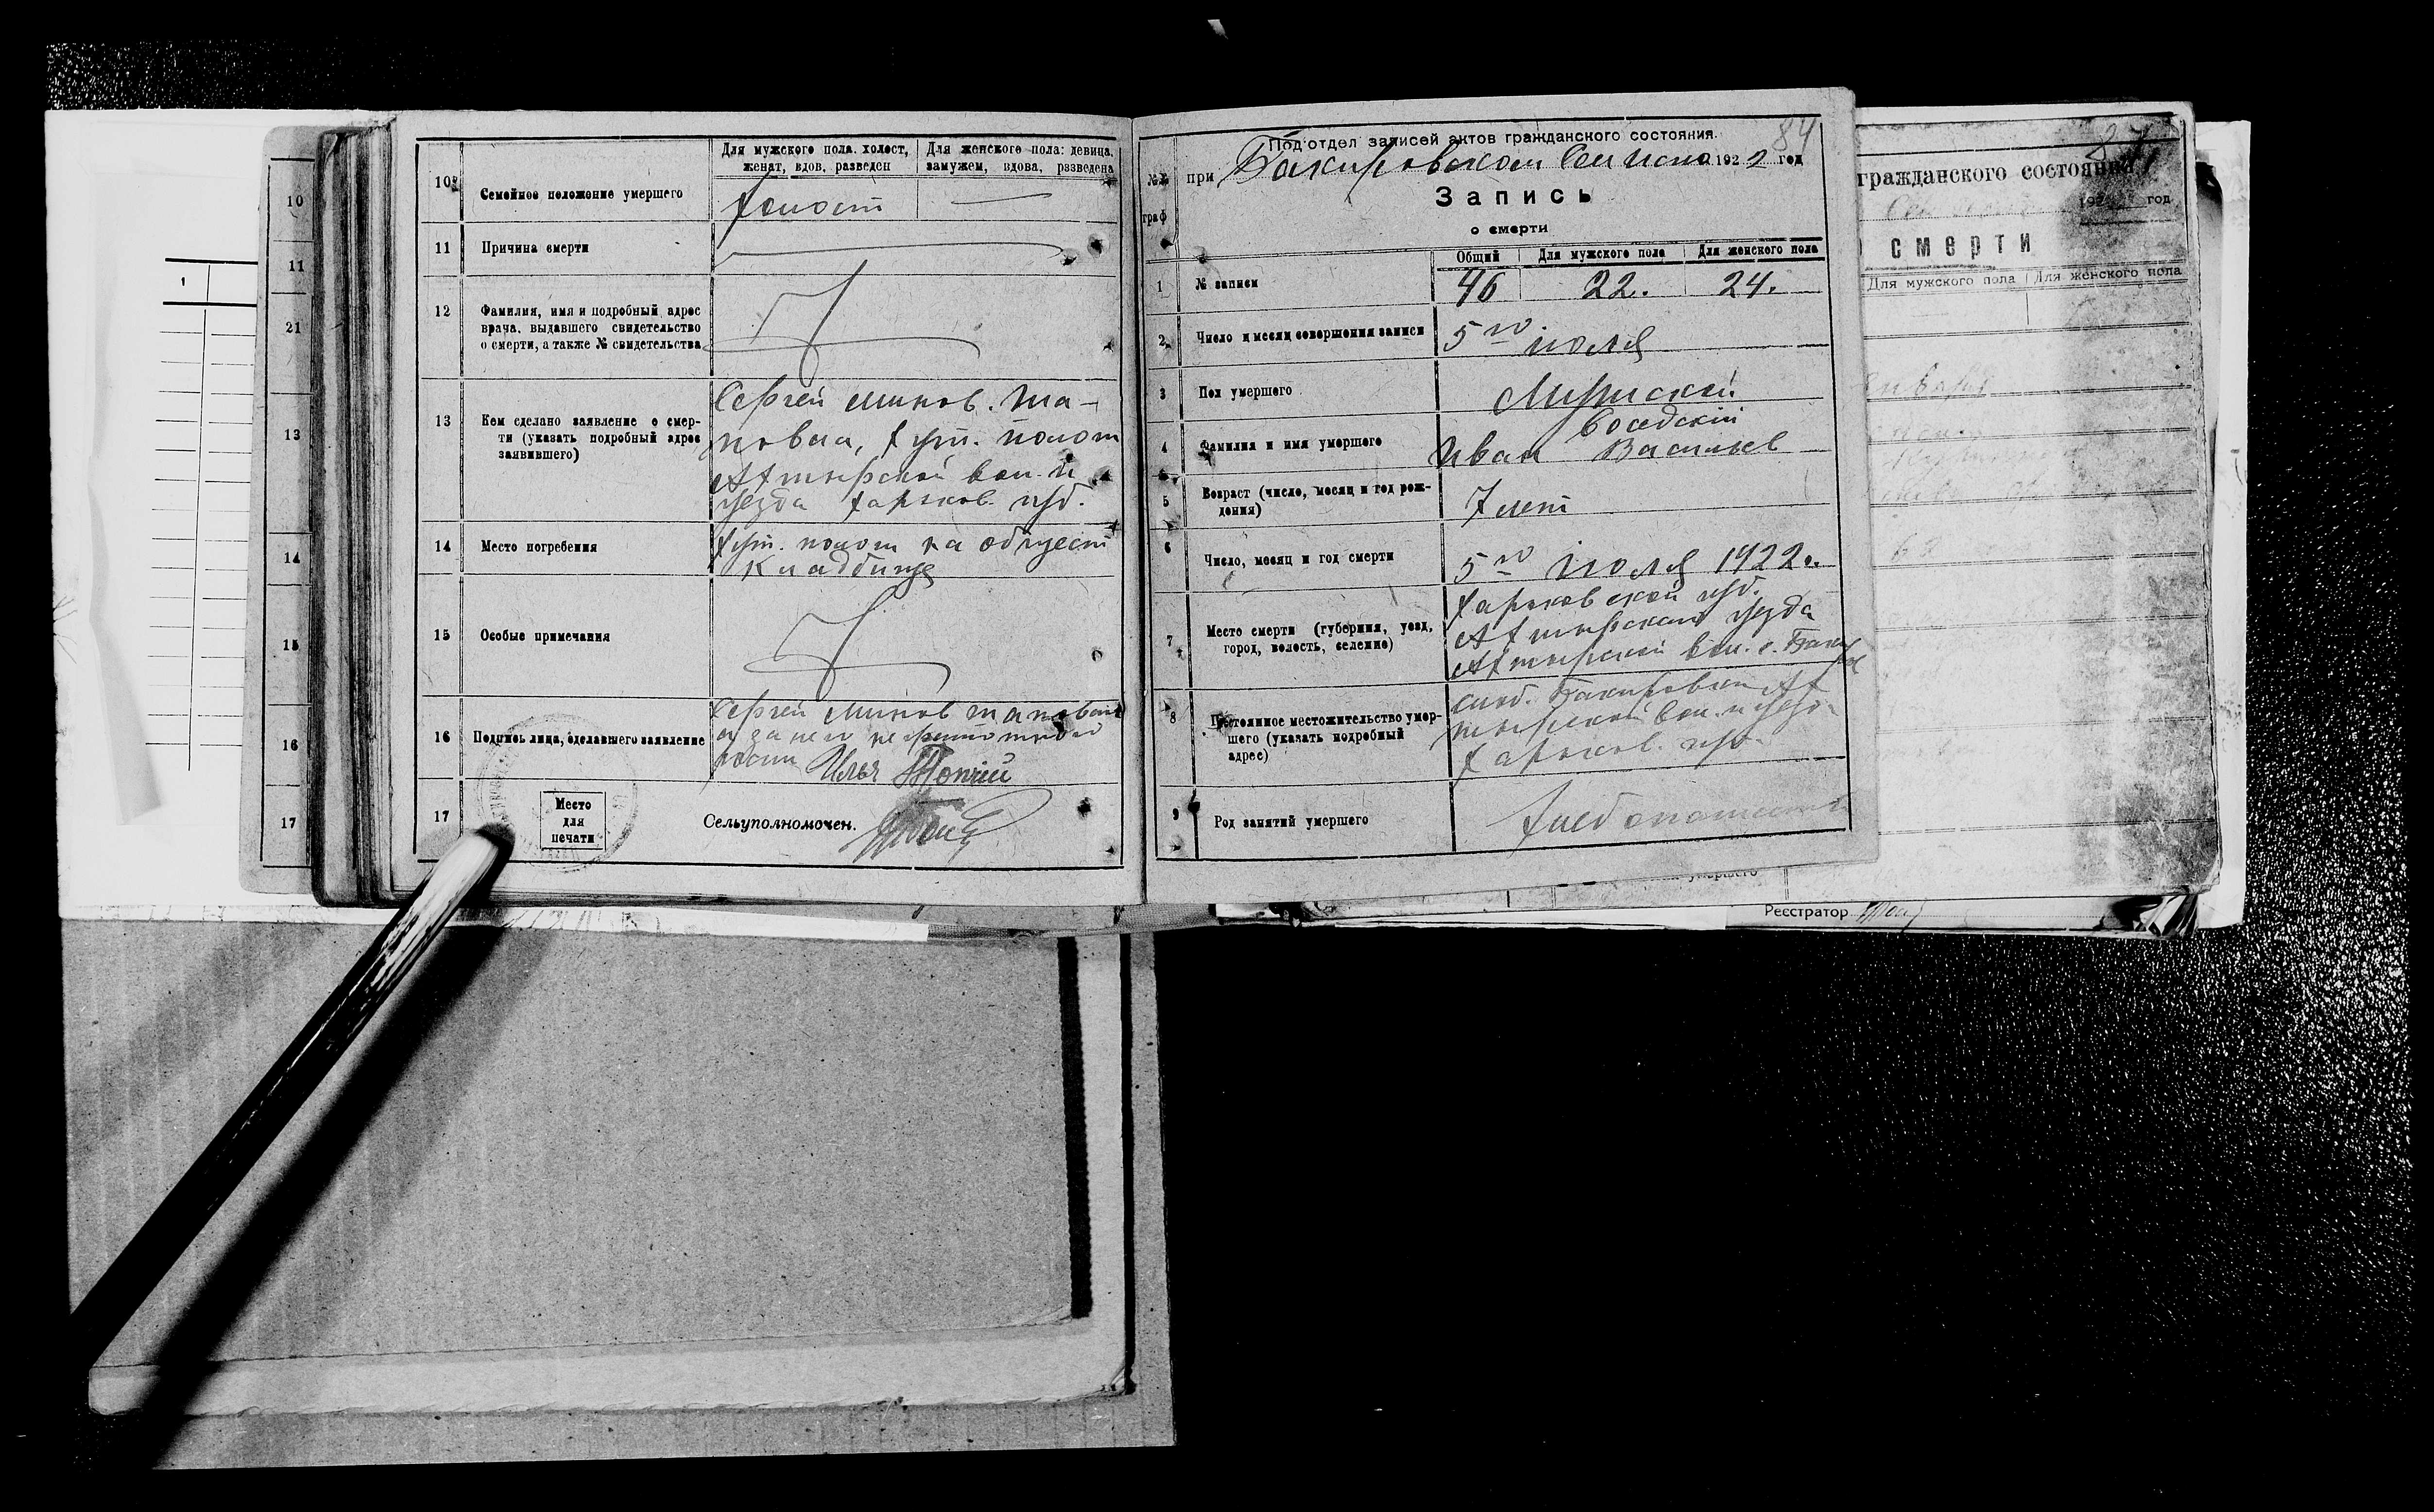 10
11
21
13
14
15
16
17
1
Для мужского пола. холост, женат, вдов, разведен
Для женского пола: девица, замужем, вдова, разведена
10 Семейное положение умершего
холост —
11 Причина смерти
12 Фамилия, имя и подробный адрес
врача, выдавшего свидетельство
о смерти, а также № свидетельства
13 Кем сделано заявление о смер-
ти (указать подробный адрес
заявившего)
Сергей Минов. Ша-
повал, хут. полот
Ахтырской вол. и
уезда харьков. губ.
14 Место погребения
хут. полот на общест
кладбище
15 Особые примечания
16 Подпись лица, сделавшего заявление
Сергей Минов Шаповал
а за него неграмотного
Илья
17
Место
для
печати
Сельуполномочен.
84
Под'отдел записей актов гражданского состояния.
№№
граф
при Бакировском 1922 год
Запись
о смерти
Общий Для мужского пола Для женского пола
1 № записи 46 22. 24.
2 Число и месяц совершения записи 5го июля
3 Пол умершего Мужской
4 Фамилия и имя умершего
Соседский
Иван Васильев
5 Возраст (число, месяц и год рож-
дения)
7 лет
6 Число, месяц и год смерти 5го июля 1922 г.
7 Место смерти (губерния, уезд,
город, волость, селение)
Харьковской губ.
Ахтырского уезда
Ахтырской вол. с.
8 Постоянное местожительство умер-
шего (указать подробный
адрес)
слоб. Бакировки Ах
тырской вол. и уезда
харьков. губ.
9 Род занятий умершего
хлебопашество
гражданского состояния
192 год
о смерти
Для мужского пола Для женского пола
января
умершего
Реєстратор